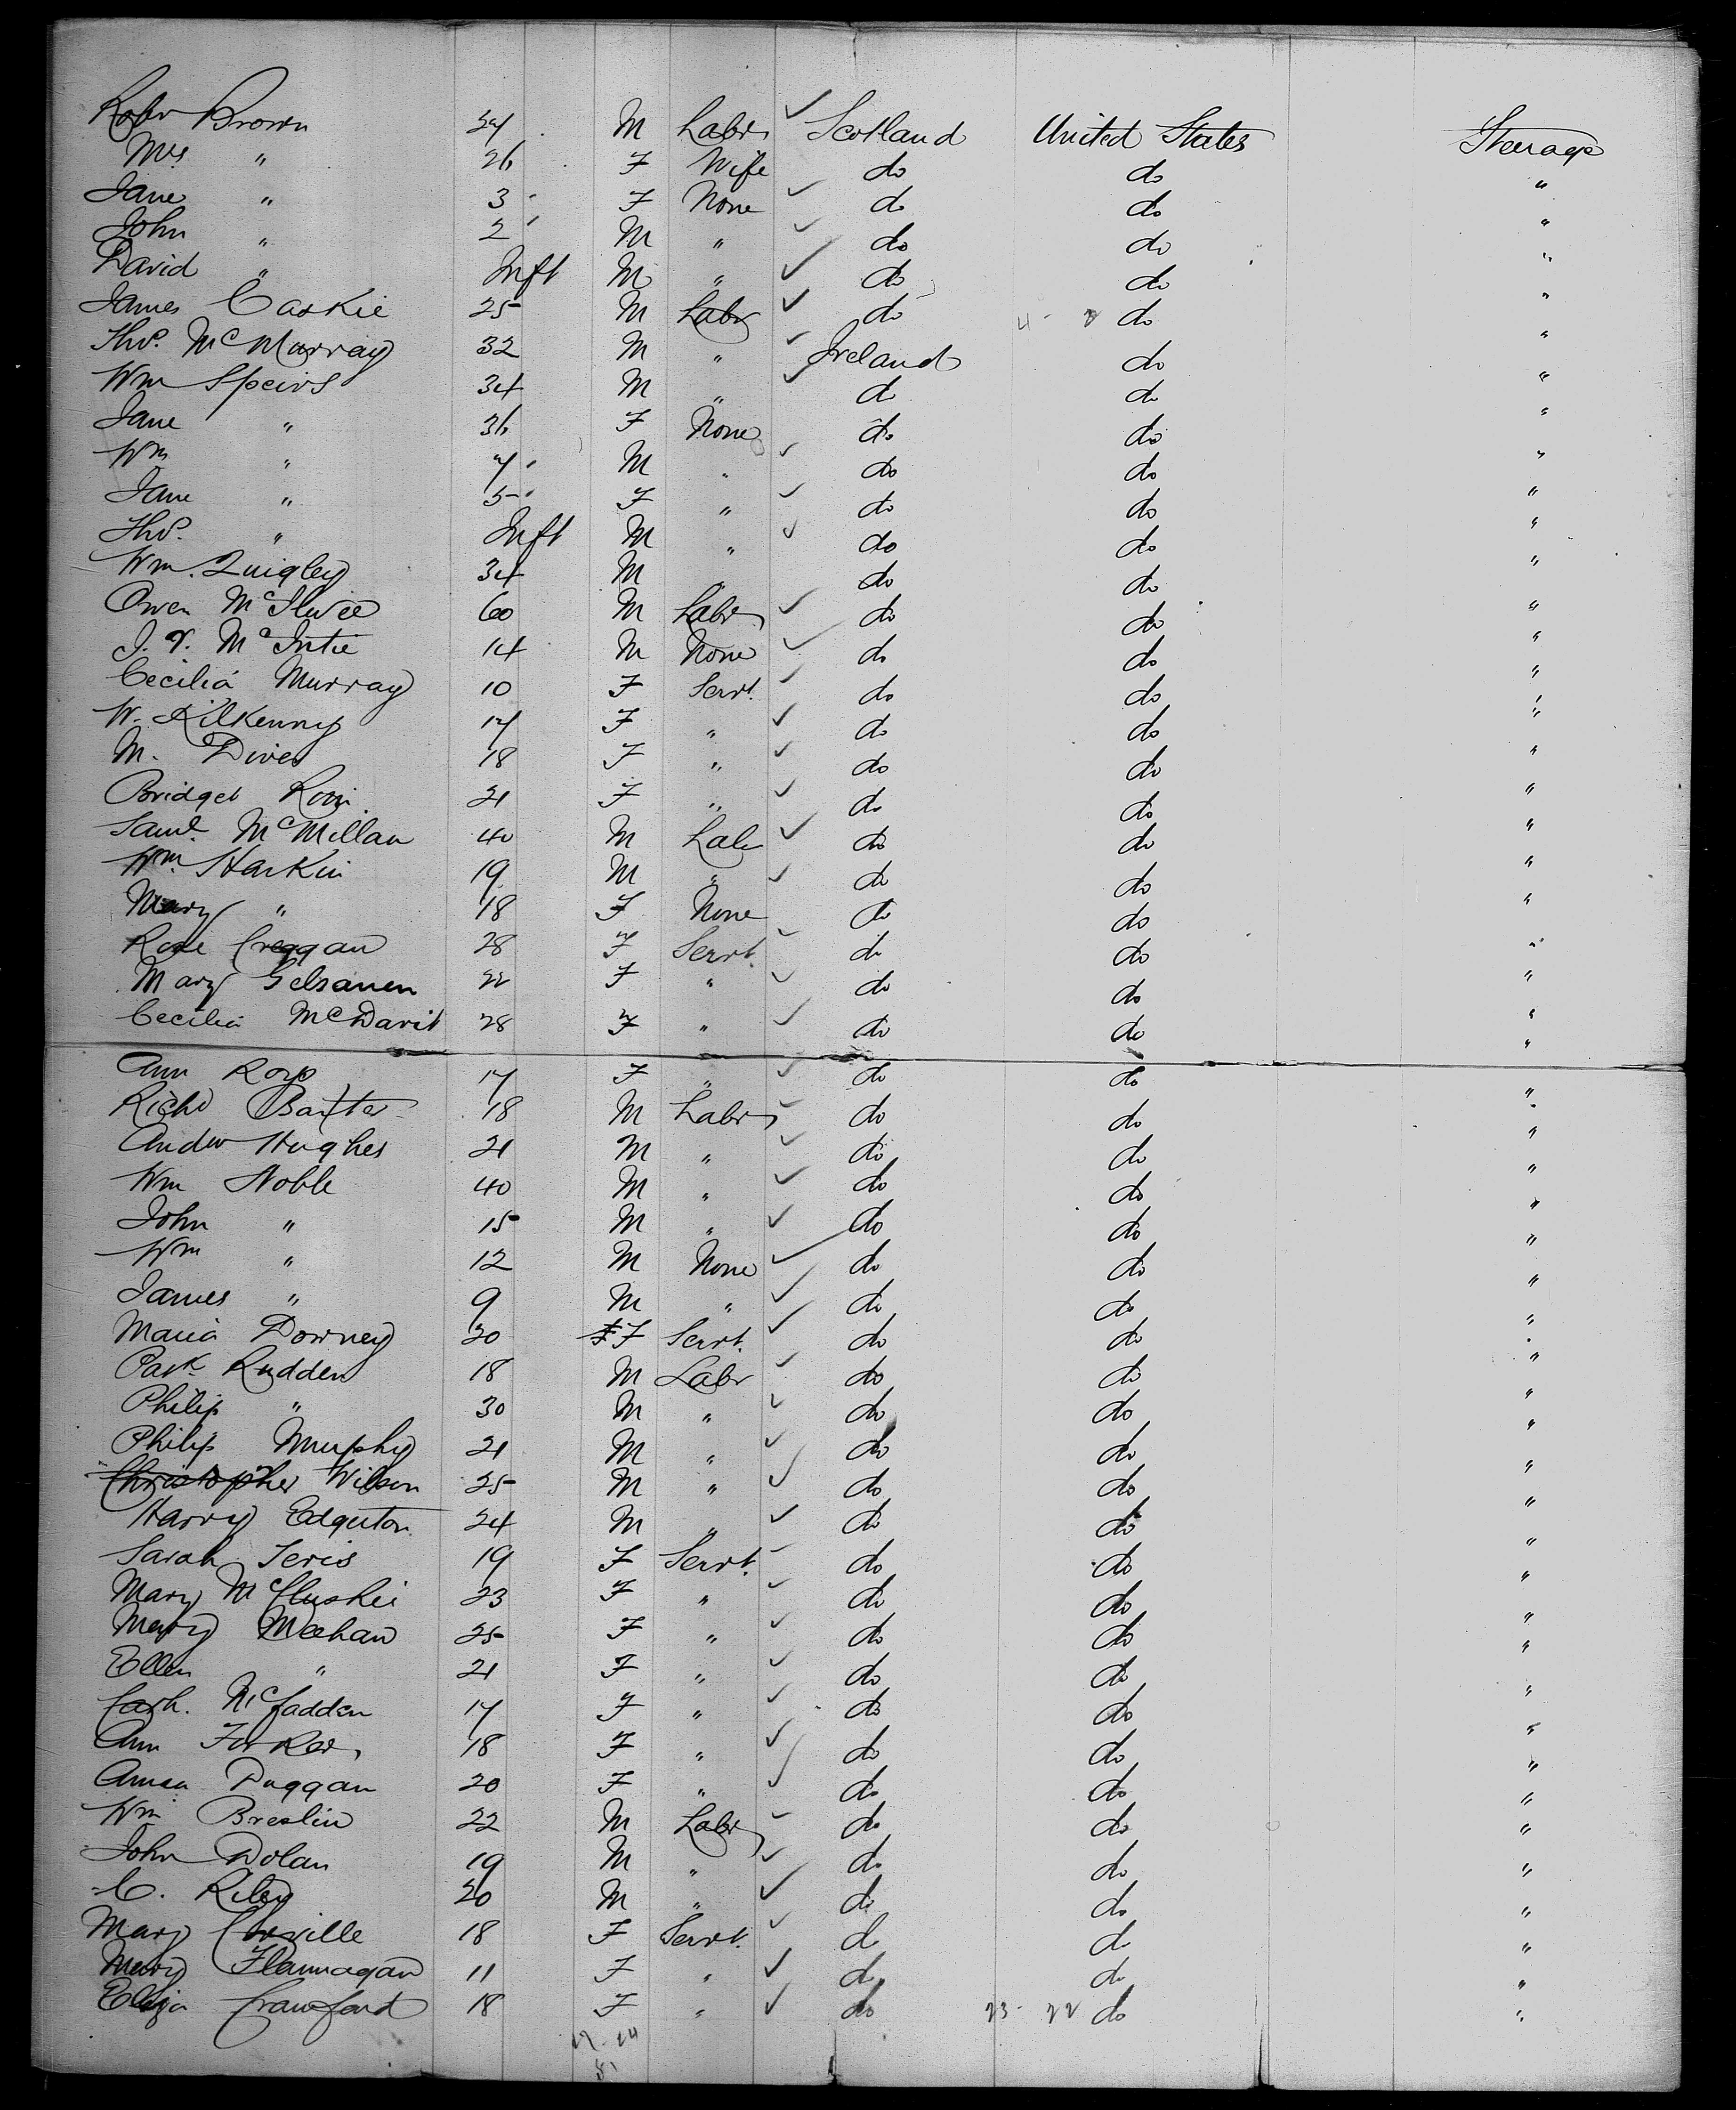 Robr Brown 27 M Labr Scotland United States Steerage
Mrs " 26 F Wife do do "
Jane " 3 F None do do "
John " 2 M " do do "
David " Inft M " do do "
James Caskie 25 M Labr do do "
Thos. McMurray 32 M " Ireland do "
Wm Speirs 34 M " do do "
Jane " 36 F None do do "
Wm " 7 M " do do "
Jane " 5 F " do do "
Thos. " Inft M " do do "
Wm. Quigley 34 M " do do "
Owen McIlwee 60 M Labr do do "
J. McIntie 14 M None do do "
Cecilia Murray 10 F Servt. do do "
W. Kilkenny 17 F " do do "
M. Diver 18 F " do do "
Bridget 21 F " do do "
Saml. McMillan 40 M Labr do do "
Wm. Harkin 19 M " do do "
Mary " 18 F None do do "
Rose Creggan 28 F Servt. do do "
Mary 22 F " do do "
Cecilia McDavit 28 F " do do "
Ann 17 F " do do "
Richd Baxter 18 M Labr do do "
Andw Hughes 21 M " do do "
Wm Noble 40 M " do do "
John " 15 M " do do "
Wm " 12 M None do do "
James " 9 M " do do "
Maria Downey 20 F Servt. do do "
Patk Rudden 18 M Labr do do "
Philip " 30 M " do do "
Philip Murphy 21 M " do do "
Christopher Wilson 25 M " do do "
Harry Edgerton 24 M " do do "
Sarah 19 F Servt. do do "
Mary McCluskie 23 F " do do "
Mary Meehan 25 F " do do "
Ellen " 21 F " do do "
Cath. McFadden 17 F " do do "
Ann Forker 18 F " do do "
Annea Duggan 20 F " do do "
Wm Breslin 22 M Labr do do "
John Dolan 19 M " do do "
C. Riley 20 M " do do "
Mary 18 F Servt. do do "
Mary Flannagan 11 F " do do "
Eliza Crawford 18 F " do 23 - 22 do "